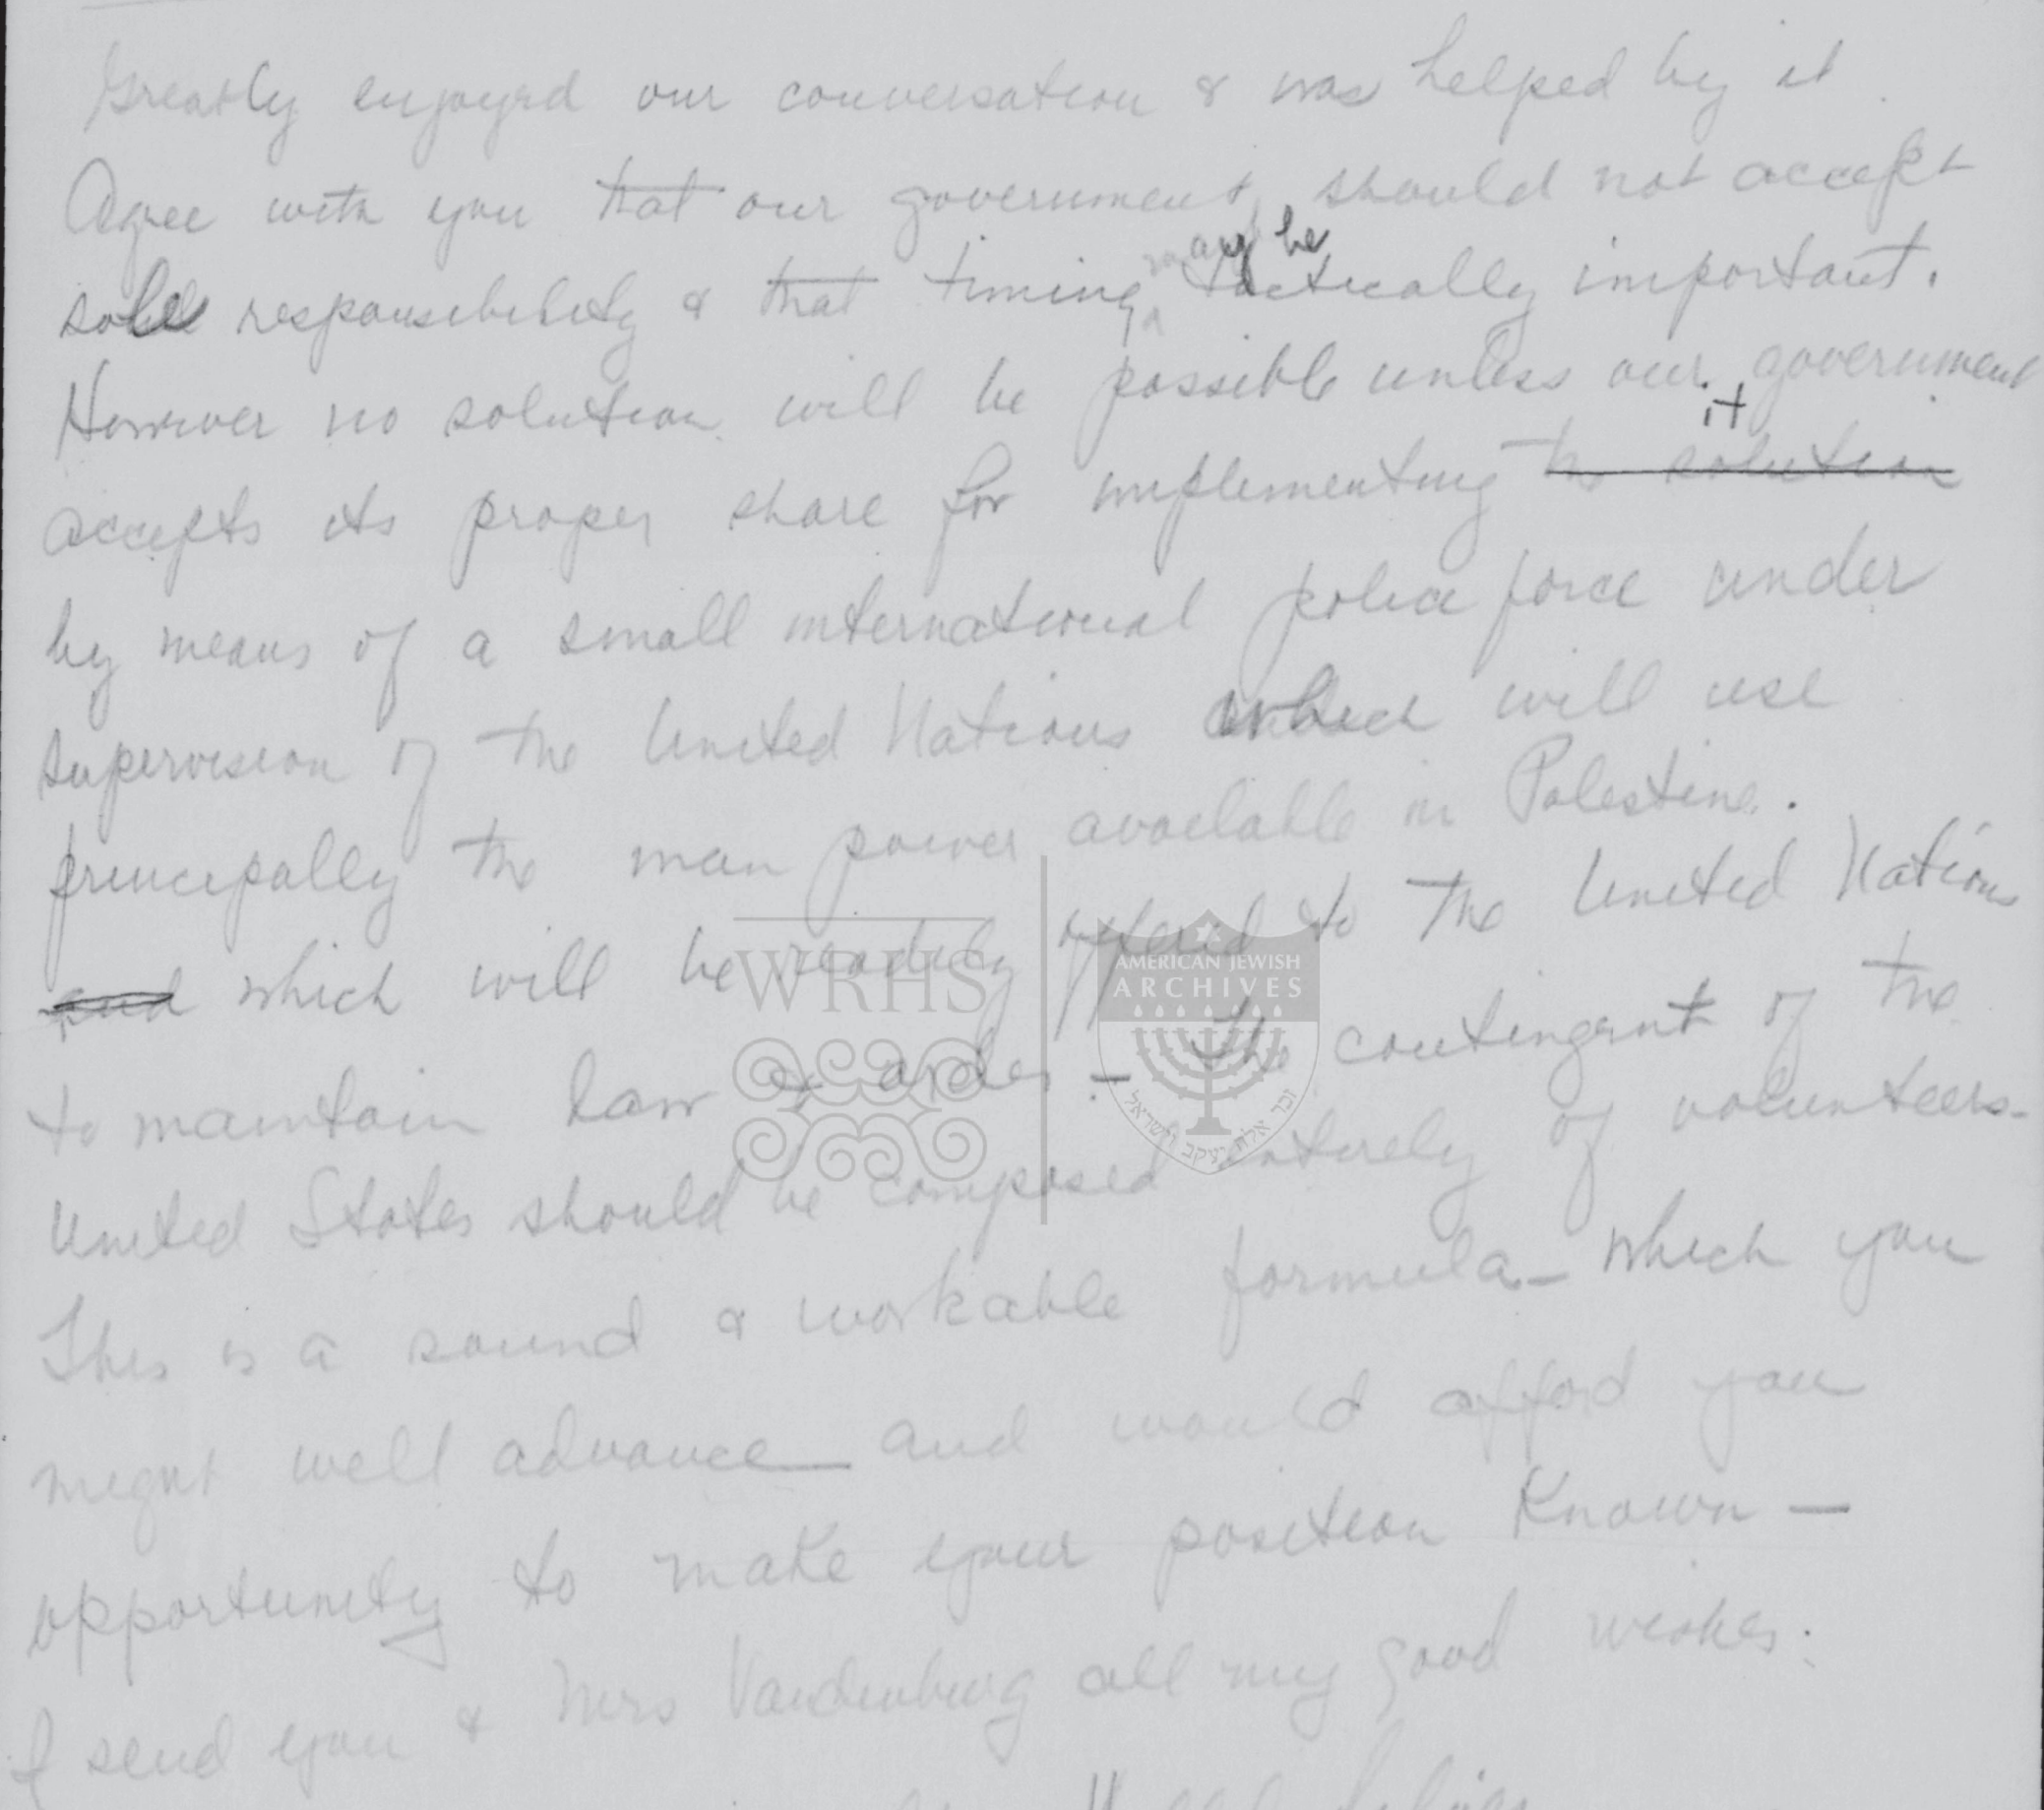 Greatly enjoyed our conversation & was helped by it.
Agree with you that our government should not accept
sole responsibility & that timing may be tactically important.
However no solution will be possible unless our government
accepts its proper share for implementing the solution it
by means of a small international police force under
supervision of the United Nations which will use
principally the man power available in Palestine.
and which will be readily offered to the United Nations
to maintain law & order - The contingent of the
United States should be composed entirely of volunteers.
This is a sound & workable formula - which you
might well advance - and would afford you
opportunity to make your position known -
I send you & Mrs Vandenburg all my good wishes.
WRHS
AMERICAN JEWISH
ARCHIVES